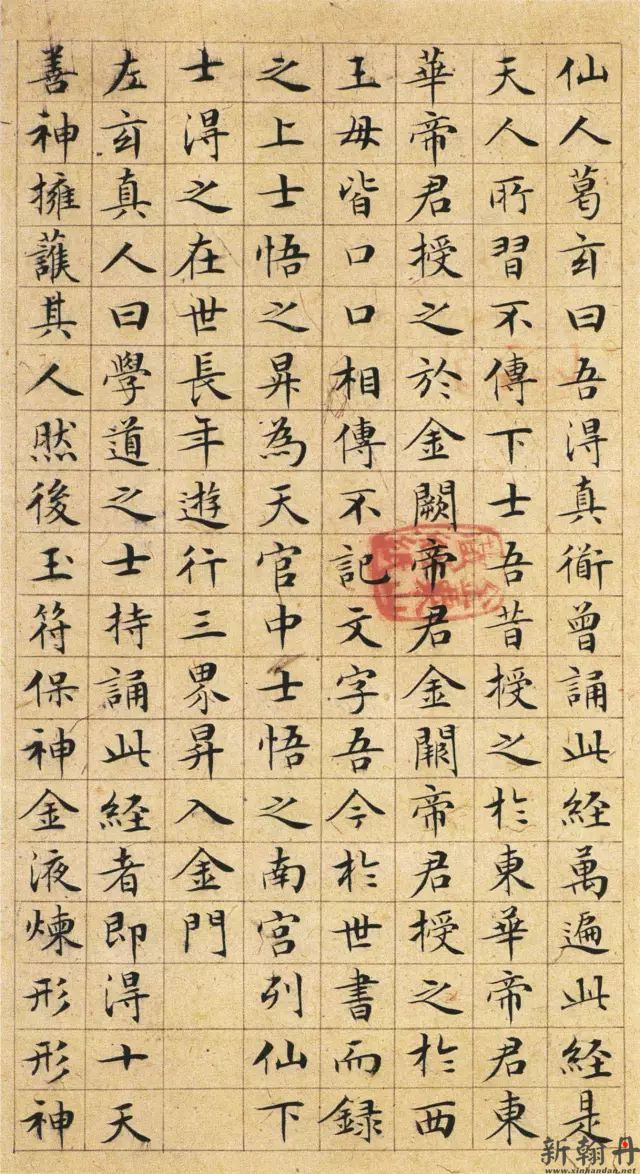 仙人葛玄曰吾得真衜曾誦此経萬遍此経是
天人所習不傳下士吾昔授之於東華帝君東
華帝君授之於金闕帝君金闕帝君授之於西
王母皆口口相傳不記文字吾今於世書而録
之上士悟之昇為天官中士悟之南宮列仙下
士得之在世長年遊行三界昇入金門
左玄真人曰學道之士持誦此経者即得十天
善神擁護其人然後玉符保神金液煉形形神
新翰丹
www.xinhandan.net